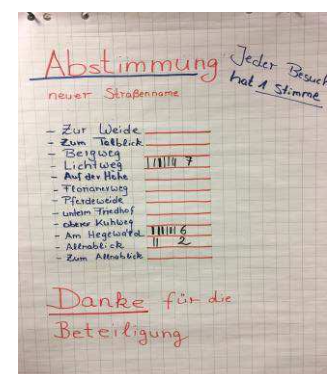 Abstimmung
Jeder Besuch
hat 1 Stimme
neuer Straßenname
- Zur Weide
- Zum Talblick
- Bergweg
- Lichtweg 7
- Auf der Höhe
- Florianerweg
- Pferdeweide
- unterm Friedhof
- oberer Kuhweg
- Am Hegewald 6
- Altnablick 2
- Zum Altnablick
Danke für die
Beteiligung